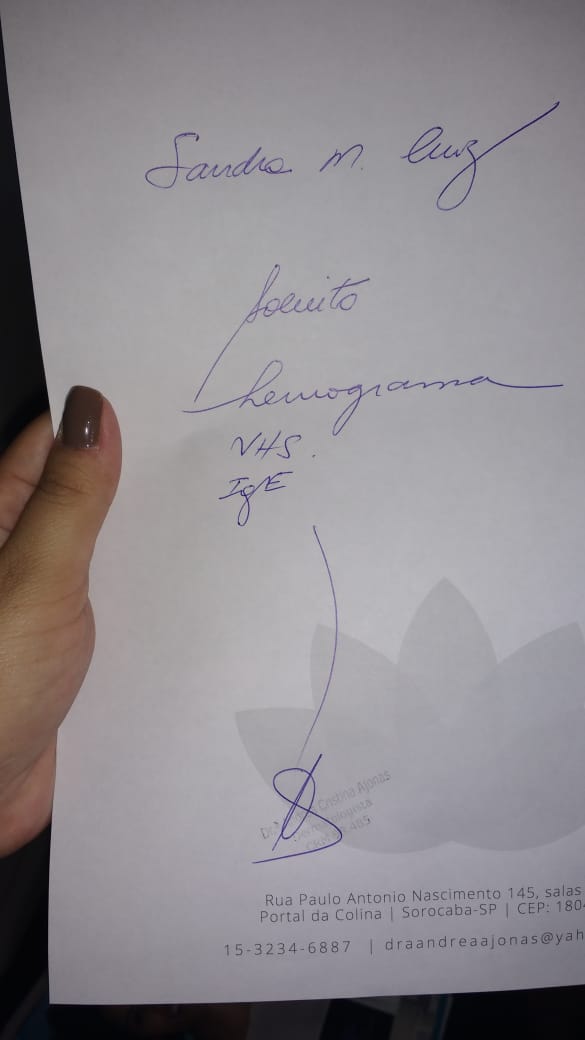 Sandra M. Cruz
Solicito
hemograma
VHS.
IgE
Cristina Ajonas
Dermatologista
Rua Paulo Antonio Nascimento 145, salas
Portal da Colina | Sorocaba-SP | CEP: 180
15-3234-6887 | draandreaajonas@yah